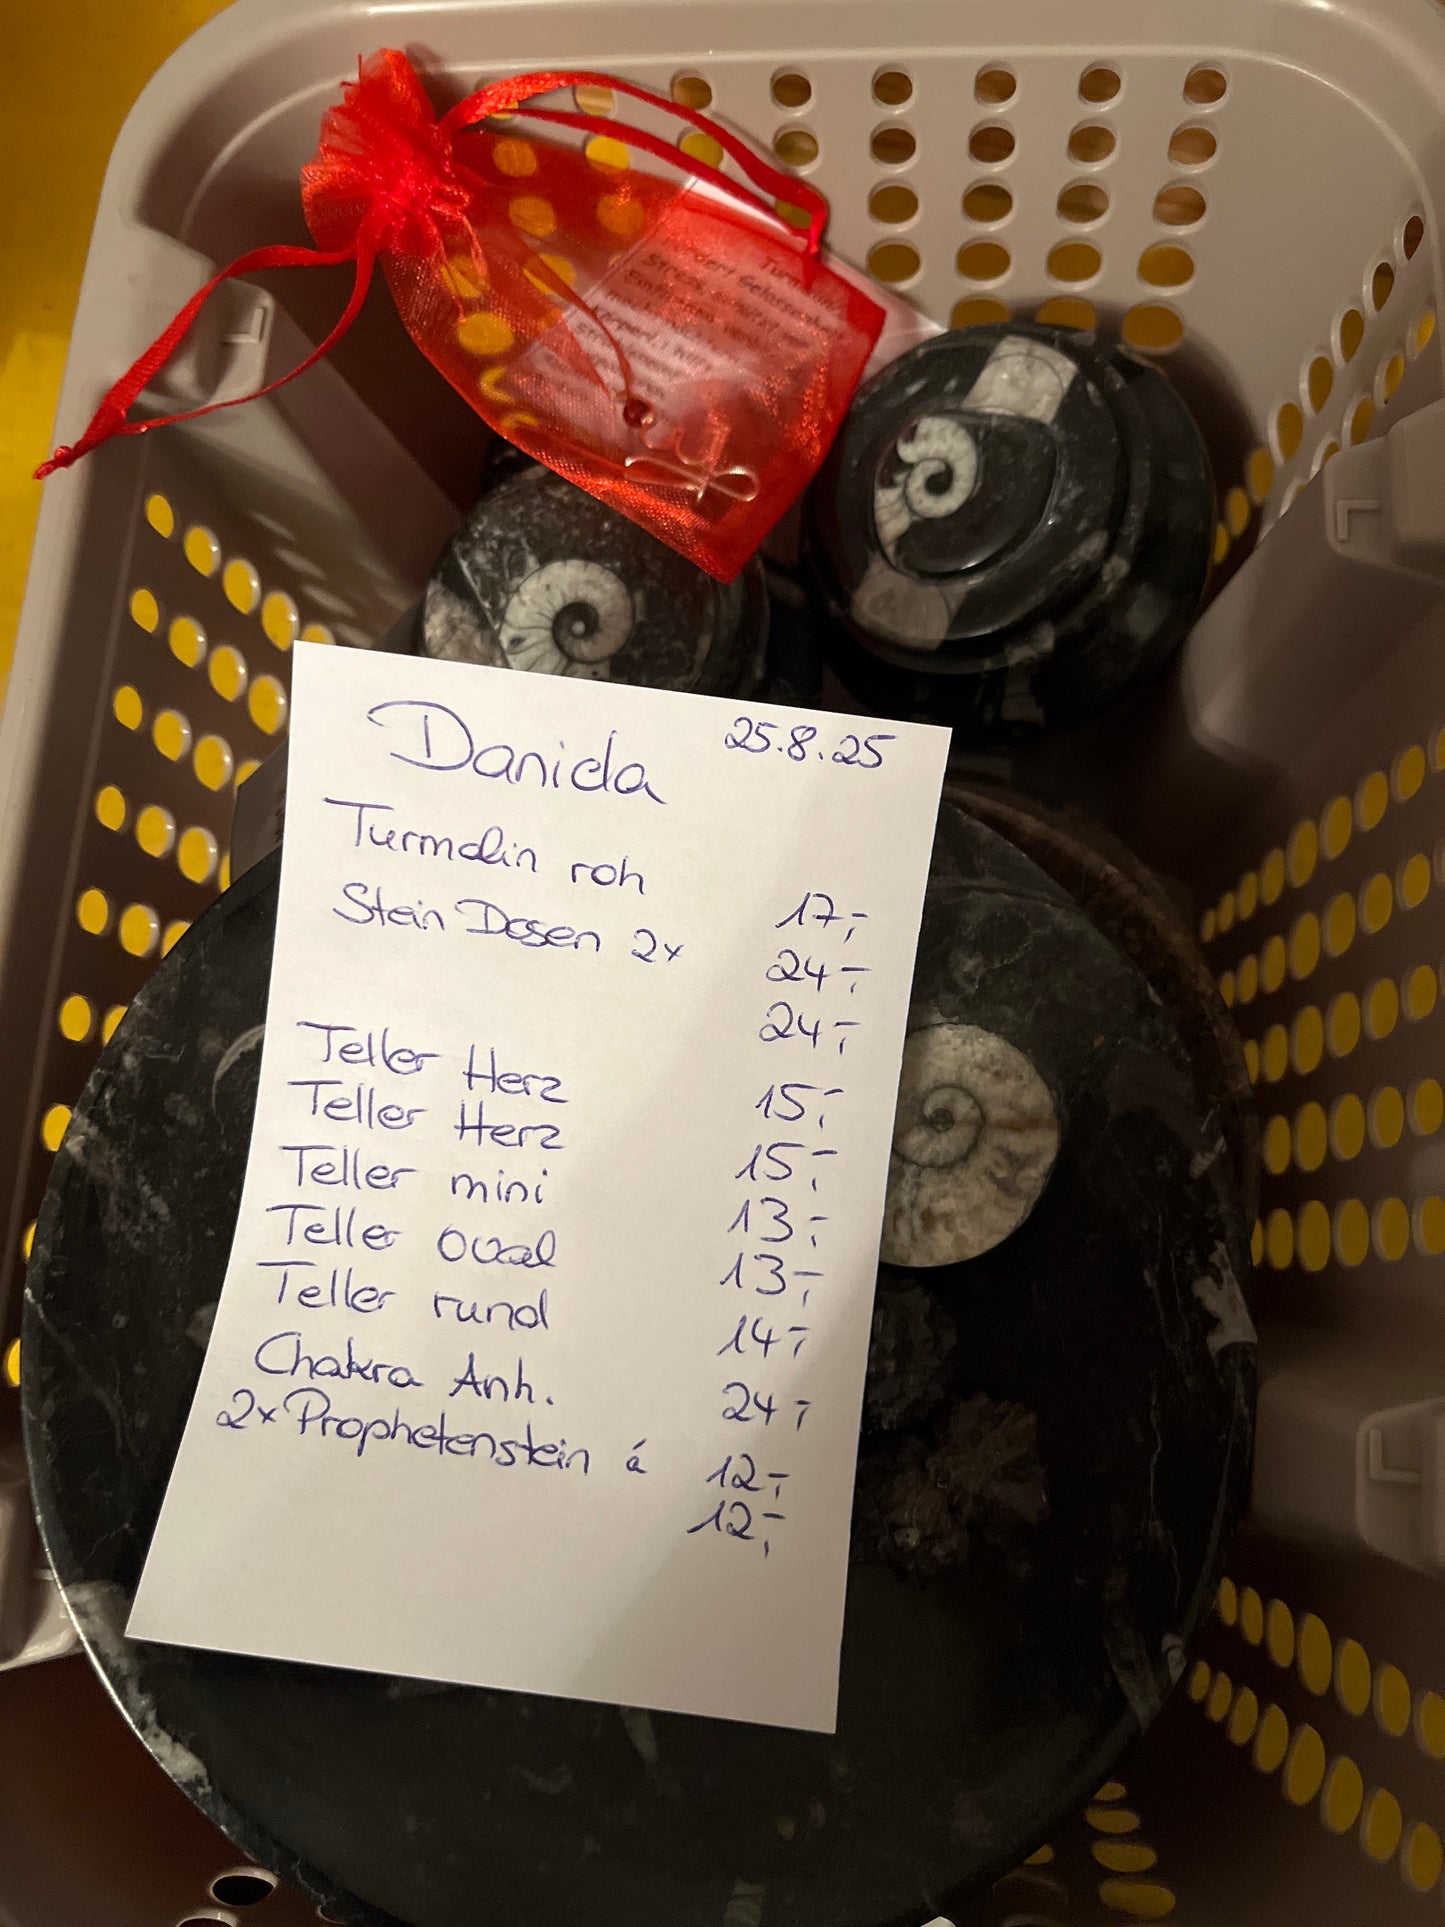 Turmalin
Daniela 25.8.25
Turmalin roh 17,-
Stein Dosen 2x 24,-
24,-
Teller Herz 15,-
Teller Herz 15,-
Teller mini 13,-
Teller oval 13,-
Teller rund 14,-
Chakra Anh. 24,-
2x Prophetenstein á 12,-
12,-